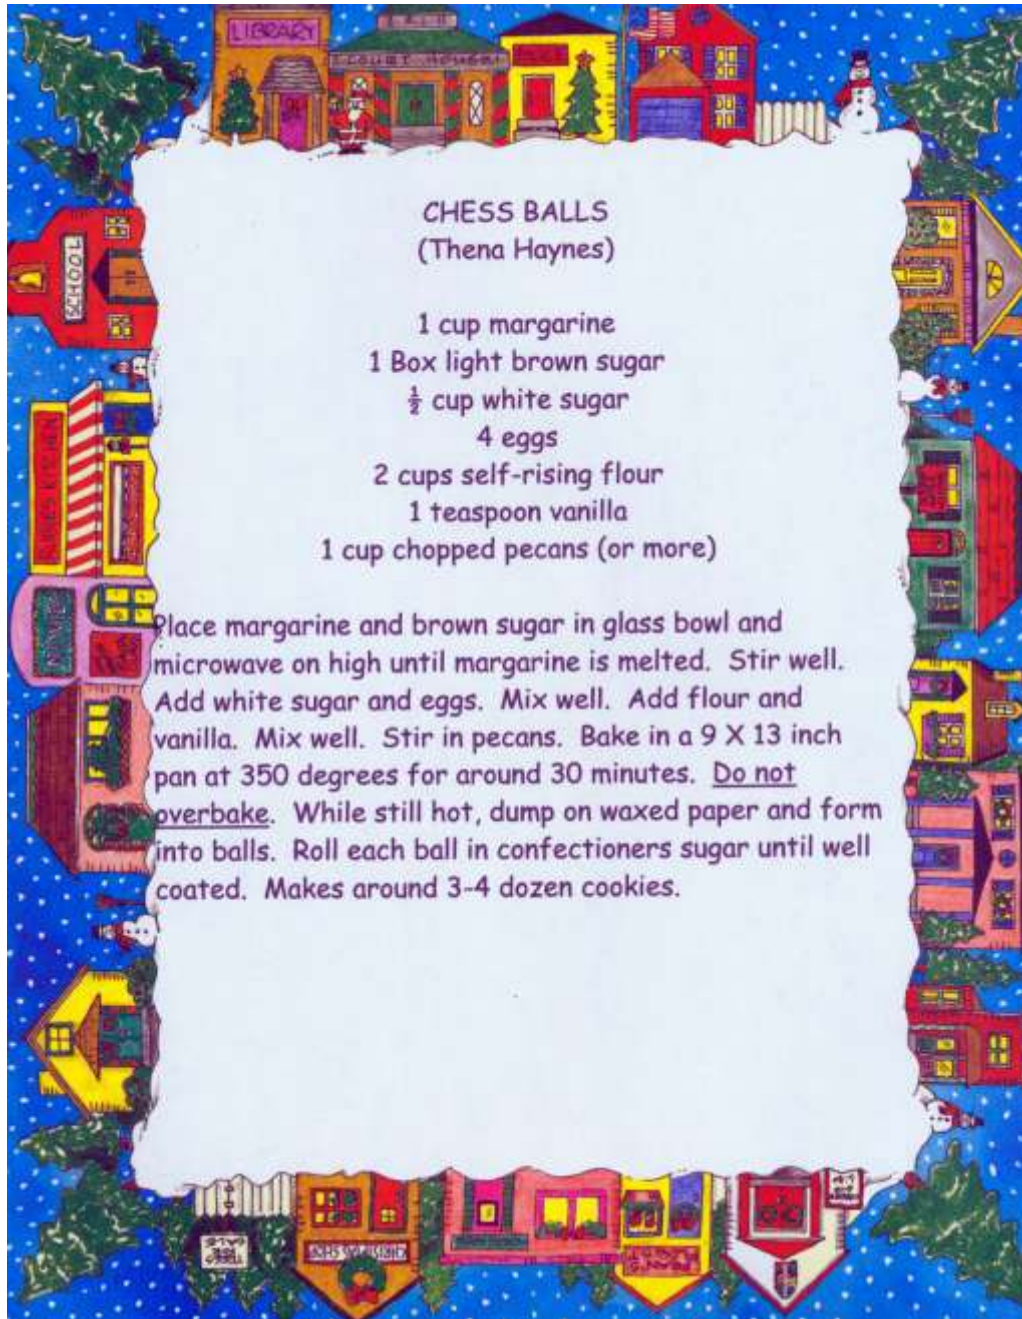 LIBRARY
COURT HOUSE
SCHOOL
CHESS BALLS
(Thena Haynes)
1 cup margarine
1 Box light brown sugar
½ cup white sugar
4 eggs
2 cups self-rising flour
1 teaspoon vanilla
1 cup chopped pecans (or more)
Place margarine and brown sugar in glass bowl and
microwave on high until margarine is melted. Stir well.
Add white sugar and eggs. Mix well. Add flour and
vanilla. Mix well. Stir in pecans. Bake in a 9 X 13 inch
pan at 350 degrees for around 30 minutes. Do not
overbake. While still hot, dump on waxed paper and form
into balls. Roll each ball in confectioners sugar until well
coated. Makes around 3-4 dozen cookies.
KITCHEN
CHRISTMAS SHOP
TREES